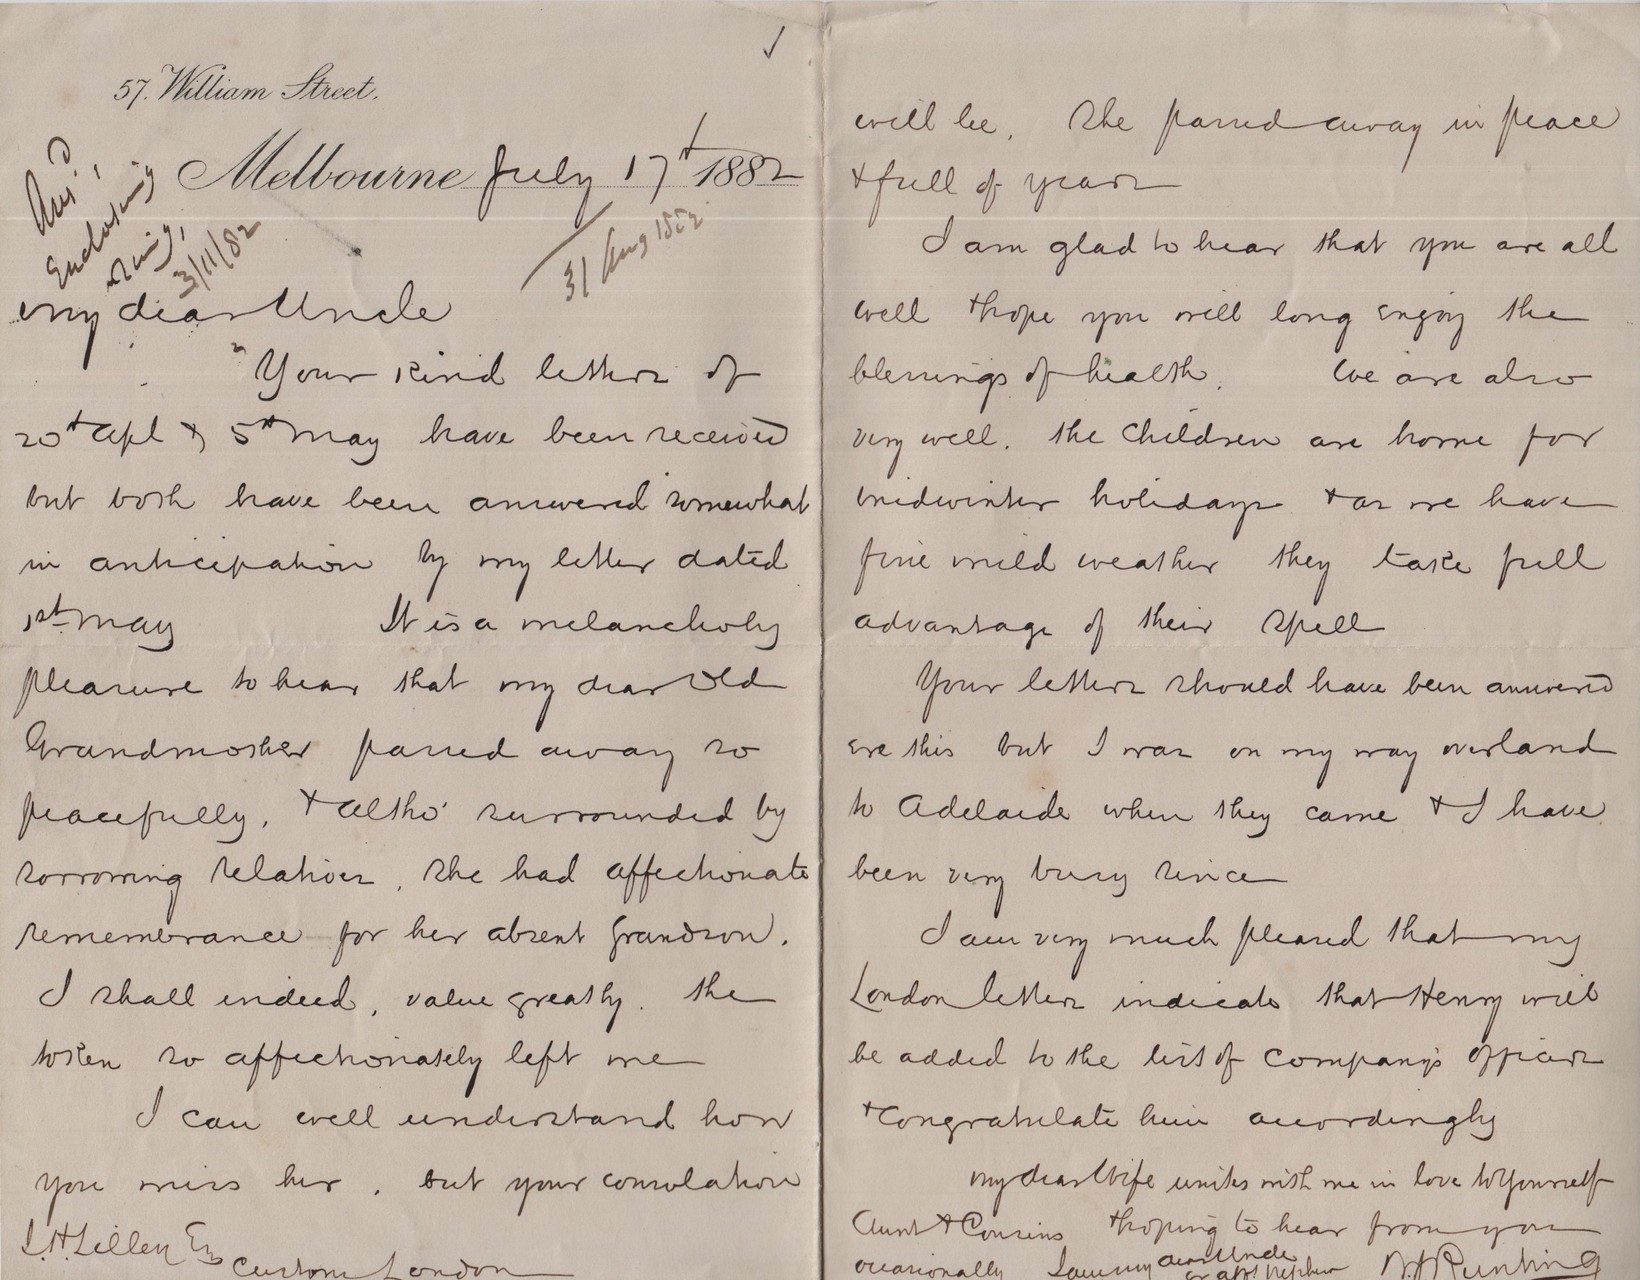 57. William Street.
Melbourne July 17th 1882
Ansd.
Enclosing
ring,
3/11/82
31 Aug 1882
My dear Uncle
Your kind letters of
20th Apl & 5th May have been received
but both have been answered somewhat
in anticipation by my letter dated
1st May It is a melancholy
pleasure to hear that my dear Old
Grandmother passed away so
peacefully, & altho' surrounded by
sorrowing relatives, she had affectionate
remembrance for her absent Grandson.
I shall indeed, value greatly. the
token so affectionately left me
I can well understand how
you miss her, but your consolation
Lilley Esq
Customs London
will be, she passed away in peace
& full of years
I am glad to hear that you are all
well & hope you will long enjoy the
blessings of health. We are also
very well. the children are home for
midwinter holidays & as we have
fine mild weather they take full
advantage of their spell
Your letters should have been answered
ere this but I was on my way overland
to Adelaide when they came & I have
been very busy since
I am very much pleased that my
London letters indicate that Henry will
be added to the list of Company's officers
& congratulate him accordingly
My dear Wife unites with me in love to Yourself
Aunt & Cousins & hoping to hear from you
occasionally I am my dear Uncle
Yr afft Nephew
Runting